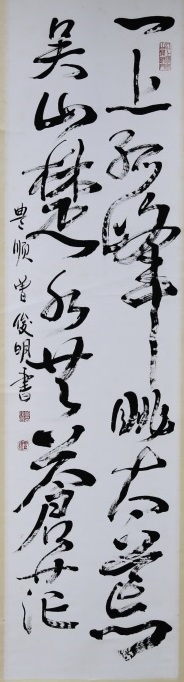 一上孤峰眺大荒
吴山楚水共蒼茫
豊順曾俊明書